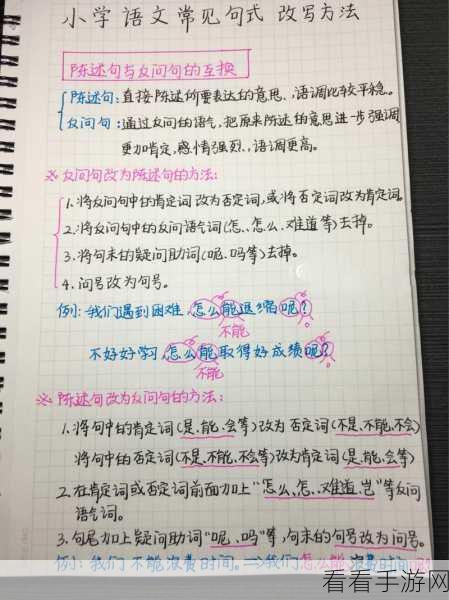 小学语文常见句式 改写方法
陈述句与反问句的互换
陈述句:直接陈述所要表达的意思、语调比较平稳。
反问句:通过反问的语气,把原来陈述的意思进一步强调
更加肯定,感情强烈、语调更高。
※反问句改为陈述句的方法:
1.将反问句中的肯定词改为否定词,或将否定词改为肯定词
2.将反问句中的反问语气词(怎、怎么、难道等)去掉。
3.将句末的疑问助词(呢、吗等)去掉。
4.问号改为句号。
例:我们遇到困难,怎么能退缩呢?
不能
不好好学习,怎么能取得好成绩呢?
不能
※陈述句改为反问句的方法:
1.将句中的肯定词(是、能、会等)改为否定词(不是、不能、不会)
将句中的否定词(不是、不能、不会等)改为肯定词(是、能、会等)
2.在肯定词或否定词前面加上"怎么、怎、难道、岂"等反问
语气词。
3.句尾加上疑问助词"呢、吗"等,句末的句号改为问号。
例:我们不能浪费时间。⇒我们怎么能浪费时间呢?
看看手游网